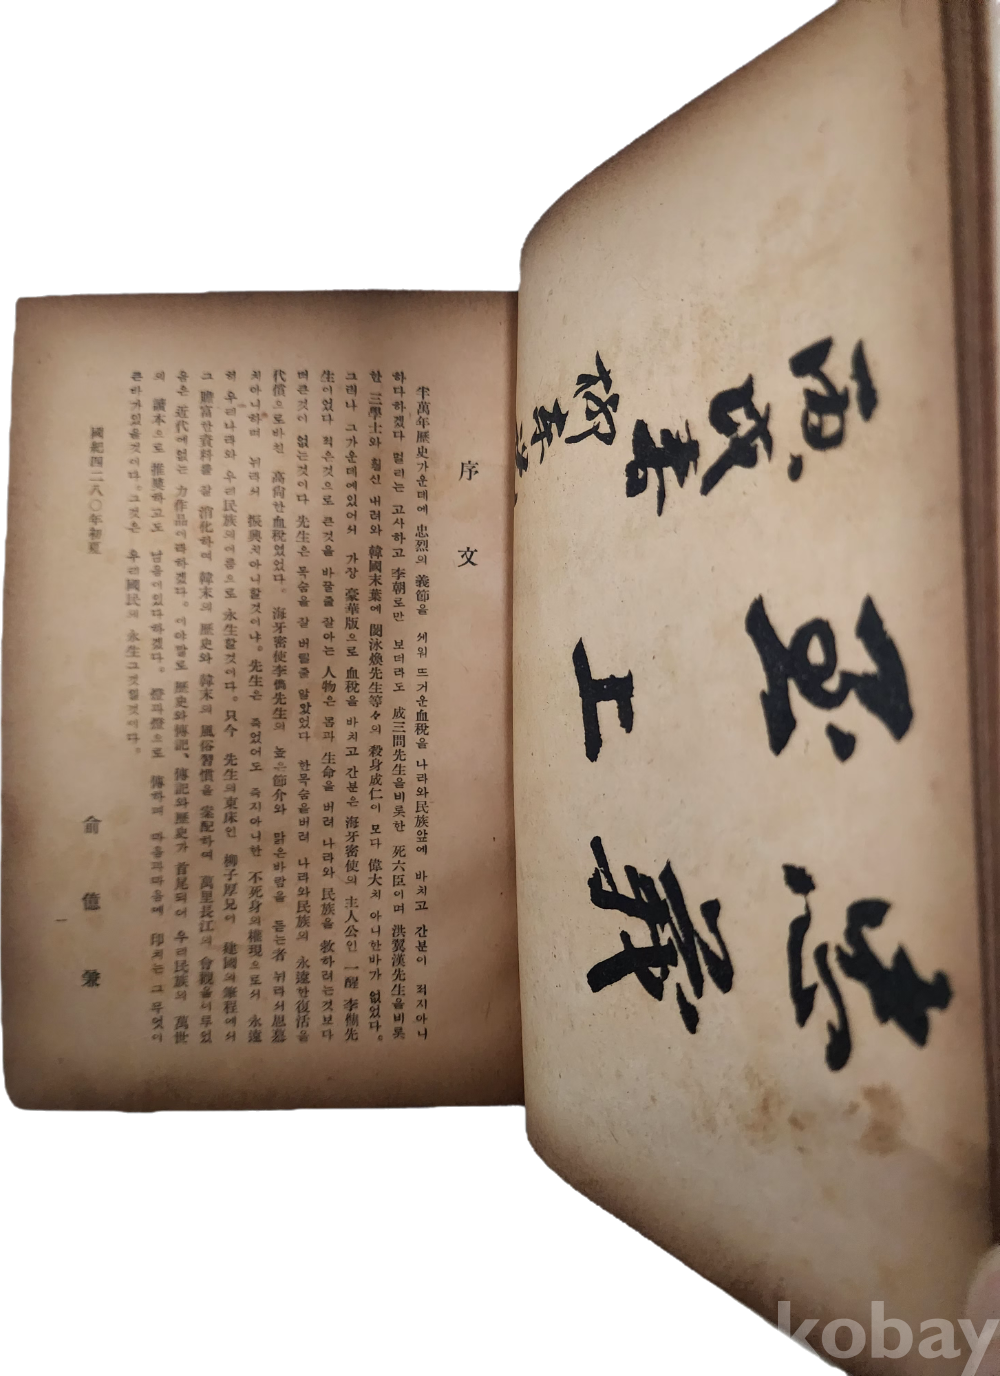 序文
半萬年歷史가운데에 忠烈의 義節을 세워 뜨거운血稅을 나라와民族앞에 바치고 간분이 적지아니
하다하겠다 멀리는 고사하고 李朝로만 보더라도 成三問先生을비롯한 死六臣이며 洪翼漢先生을비롯
한 三學士와 훨신 내려와 韓國末葉에 閔泳煥先生等々의 殺身成仁이 모다 偉大치 아니한바가 없었다。
그러나 그가운데에있어서 가장 豪華版으로 血稅을 바치고 간분은 海牙密使의 主人公인 一醒 李儁先
生이었다 적은것으로 큰것을 바꿀줄 잘아는 人物은 몸과 生命을 버려 나라와 民族을 救하려는것보다
더큰것이 없는것이다 先生은 목숨을 잘 버릴줄 알았었다 한목숨을버려 나라와民族의 永遠한復活을
代償으로바친 高尙한血稅였었다。海牙密使李儁先生의 높은節介와 맑은바람을 듣는者 뉘라서思慕
치아니하며 뉘라서 振興치아니할것이냐。先生은 죽었어도 죽지아니한 不死身의權現으로서 永遠
히 우리나라와 우리民族의이름으로 永生할것이다。只今 先生의東床인 柳子厚兄이 建國의筆程에서
그 贍富한資料를 잘 消化하여 韓末의 歷史와 韓末의 風俗習慣을 案配하여 萬里長江의 會觀을이루었
음은 近代에없는 力作品이라하겠다。이야말로 歷史와傳記、傳記와歷史가 首尾되어 우리民族의 萬世
의 讀本으로 推奬하고도 남음이있다하겠다。燈과燈으로 傳하며 마음과마음에 印치는 그무엇이
큰바가있을것이다。그것은 우리國民의 永生그것일것이다。
國紀四二八〇年初夏
兪億兼
一
kobay